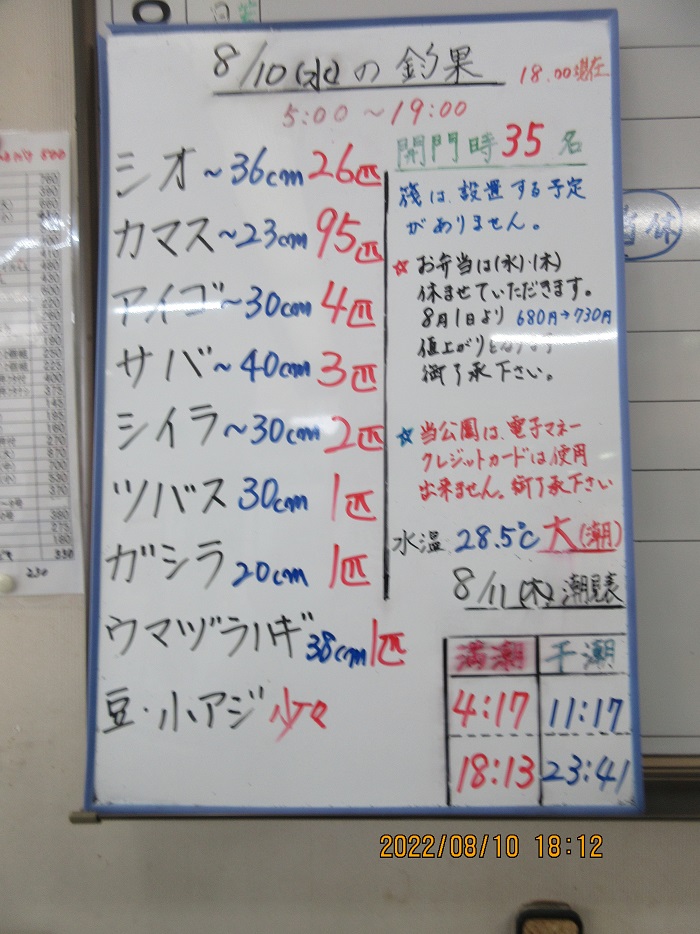 8/10(水)の釣果
18:00現在
5:00~19:00
シオ~36cm 26匹
カマス~23cm 95匹
アイゴ~30cm 4匹
サバ~40cm 3匹
シイラ~30cm 2匹
ツバス 30cm 1匹
ガシラ 20cm 1匹
ウマヅラハギ 38cm 1匹
豆・小アジ 少々
開門時 35名
筏は、設置する予定
がありません。
☆お弁当は(水)・(木)
休ませていただきます。
8月1日より 680円→730円
値上がりとなります
御了承下さい。
☆当公園は、電子マネー
クレジットカードは使用
出来ません。御了承下さい
水温 28.5℃ 大(潮)
8/11(木)潮見表
満潮 干潮
4:17 11:17
18:13 23:41
2022/08/10 18:12